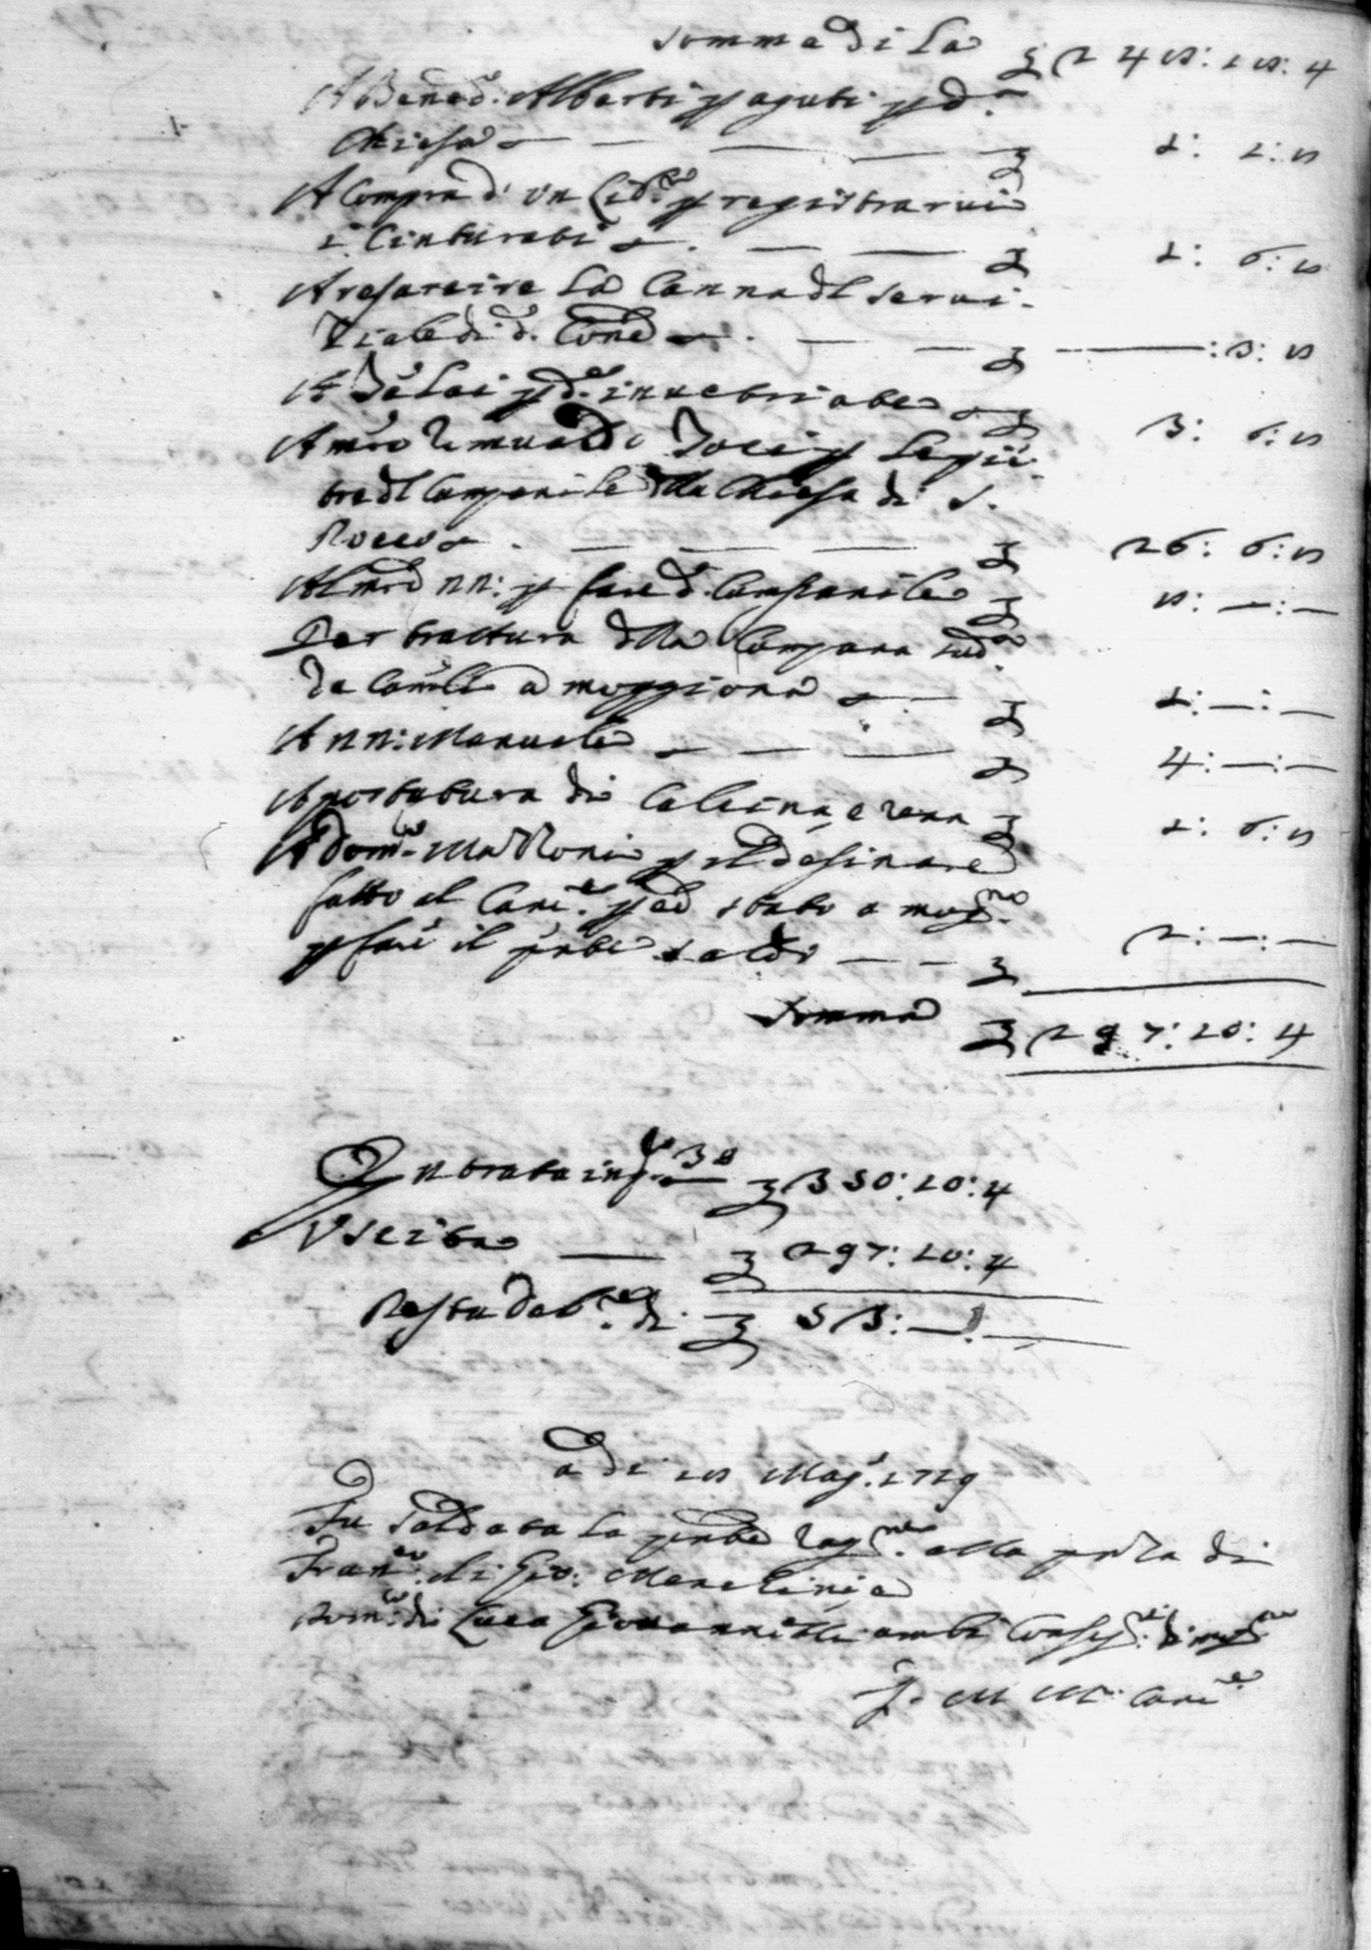 Somma di là £ 248: 18: 4
A Bened: Alberti p aguti p d.a
Chiesa — £ 1: 1: 8
A Compra d' un Lib.o p registrarvi
i Cinturati — £ 1: 6: 8
A resarcire la Canna dl servi-
ziale di d. Cone — £ —: 13: 8
p d.e invetriate £ 3: 6: 8
A mro Romualdo p le pie-
tre dl Campanile dlla Chiesa di S.
Rocco — £ 26: 6: 8
Al mro nn: p fare d. Campanile £ 8: —: —
Per trattura dlla Campana sud.a
da a Moggiona — £ 1: —: —
A nn: Manuali — £ 4: —: —
A portatura di Calcina, e rena £ 1: 6: 8
A Dom.co p il desinare
fatto al Canc.e p ed stato a mog.no
p fare il pnte saldo — £ 2: —: —
Somma £ 297: 10: 4
Entrata in £ 350: 10: 4
Uscita — £ 297: 10: 4
Resta deb.re di £ 53: —: —
a di 18 Mag.o 1729
Fu saldata la pnte rag.ne alla pnza di
Fran.co di Gio: e
Dom.co di Luca Giovannetti ambi
G. M. M. Canc.e